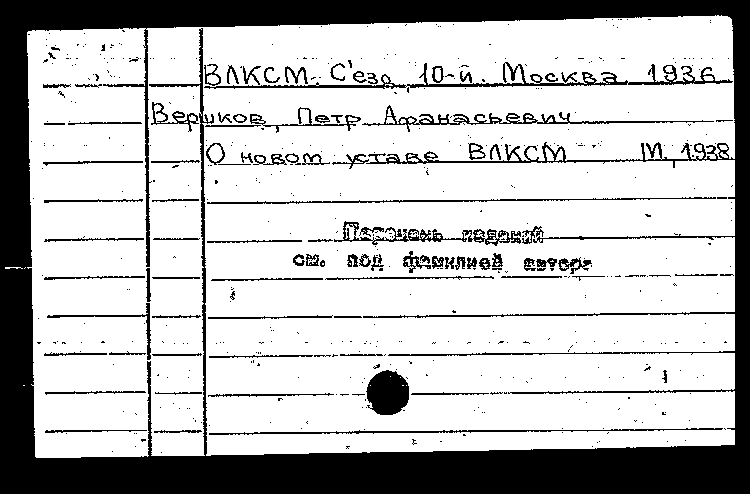 ВЛКСМ. С'езд 10-й. Москва 1936
Вершков, Петр Афанасьевич
О новом уставе ВЛКСМ М., 1938.
Перечень изданий
см. под фамилией автора